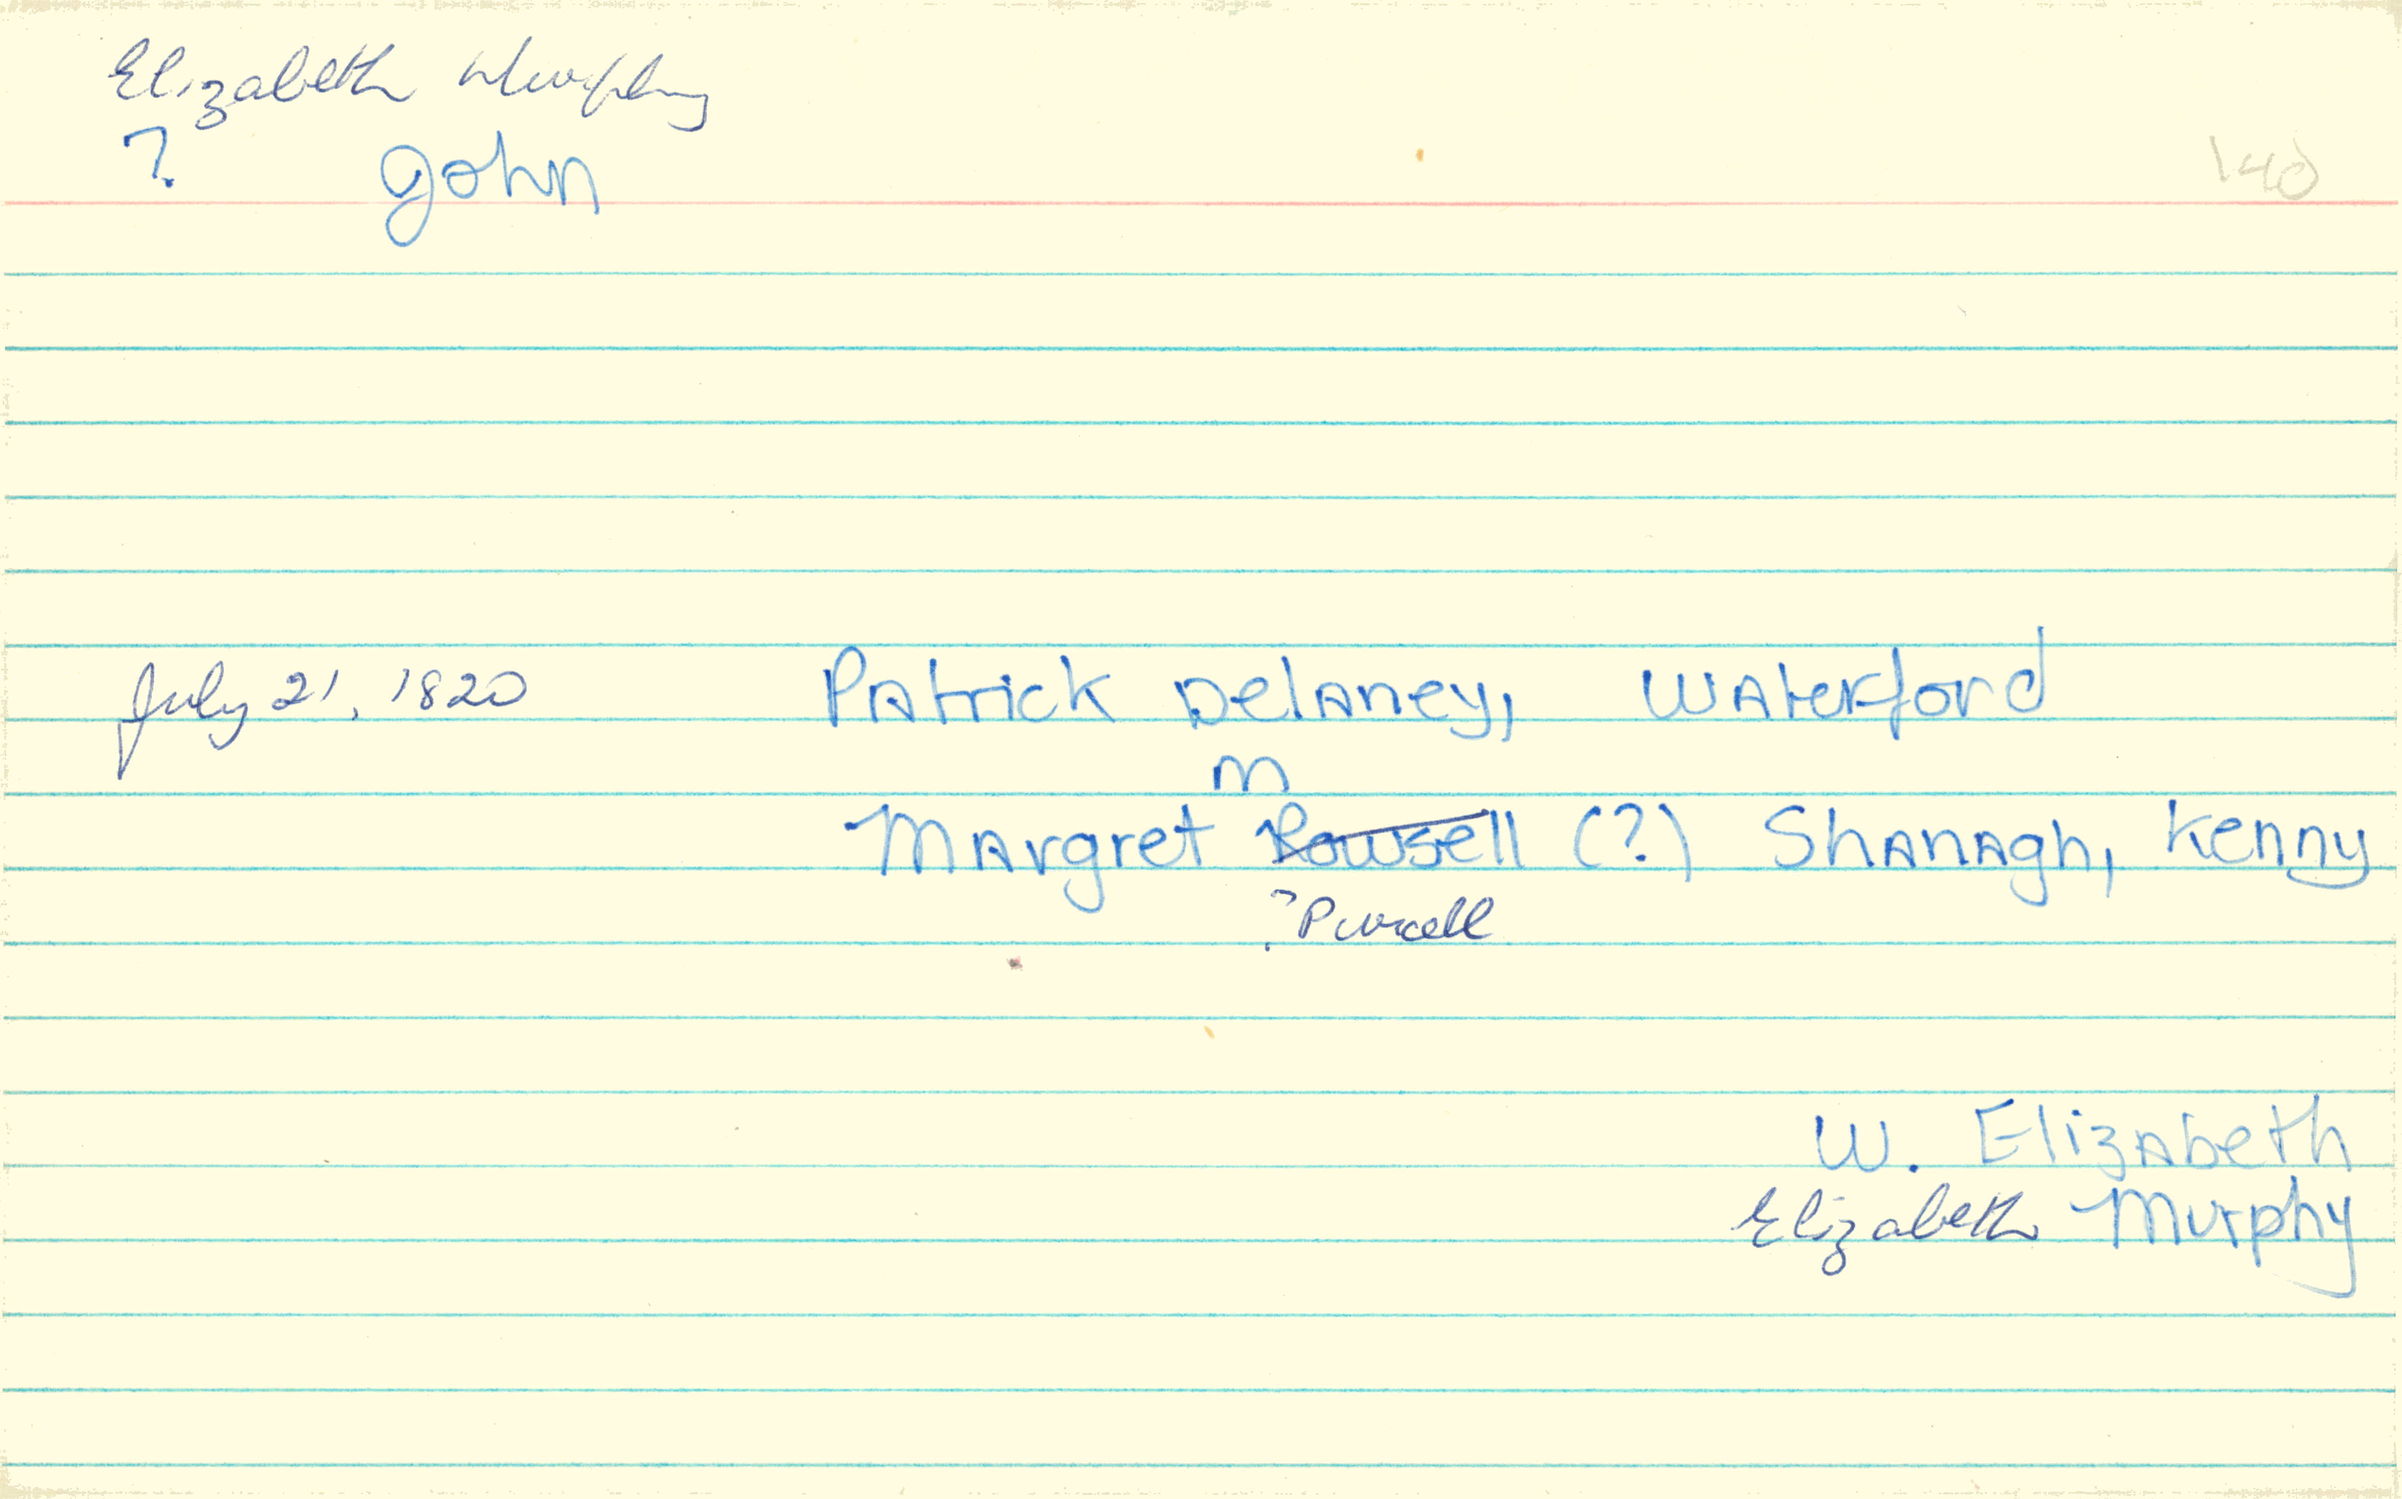 Elizabeth Murphy
? John
140
July 21, 1820 Patrick Delaney, Waterford
m
Margret Rowsell (?) Shanagh, Kenny
? Purcell
W. Elizabeth
Elizabeth Murphy